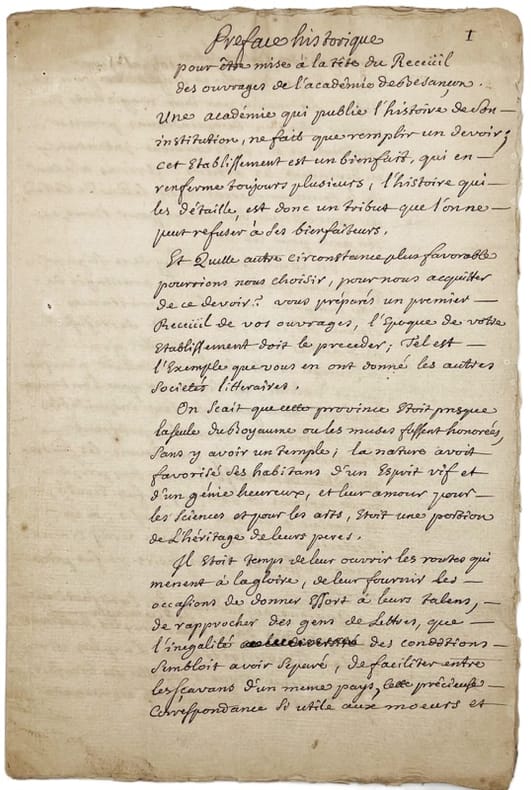 Preface historique
1
pour être mise à la tête du Recüeil
des ouvrages de l'académie de Besançon.
Une académie qui publie l'histoire de Son
institution, ne fait que remplir un devoir;
cet Etablissement est un bienfait, qui en
renferme toujours plusieurs, l'histoire qui
les détaille, est donc un tribut que l'on ne
peut refuser à Ses bienfaiteurs.
Et Quelle autre circonstance plus favorable
pourrions nous choisir, pour nous acquitter
de ce devoir? vous préparés un premier
Recüeil de vos ouvrages, l'Epoque de votre
Etablissement doit le preceder; Tel est
l'Exemple que vous en ont donné les autres
Societés litteraires.
On Scait que cette province Etoit presque
la seule du Royaume ou les muses fussent honorées,
Sans y avoir un temple; la nature avoit
favorisé Ses habitans d'un Esprit vif et
d'un génie heureux, et leur amour pour
les Sciences et pour les arts, Etoit une portion
de L'héritage de leurs peres.
Il Etoit temps de leur ouvrir les routes qui
menent à la gloire, de leur fournir les
occasions de donner Essort à leurs talens,
de rapprocher des gens de Lettres, que
l'inegalité des conditions
Sembloit avoir Separé, de faciliter entre
les scavans d'un meme pays, cette précieuse
Correspondance Si utile aux moeurs et